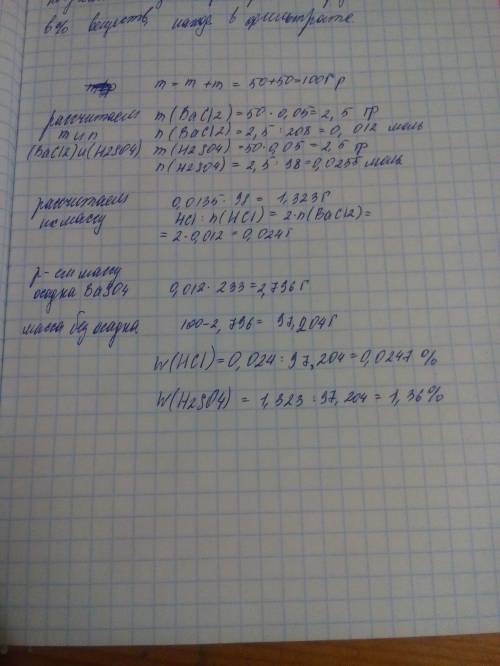 в% веществ, наход в фильтрате.
m = m + m = 50+50=100гр
рассчитаем m(BaCl2)=50·0,05=2,5 гр
m и n n(BaCl2)=2,5:208=0,012 моль
(BaCl2)и(H2SO4) m(H2SO4)=50·0,05=2,5 гр
n(H2SO4)=2,5:98=0,0255 моль
рассчитаем 0,0135·98= 1,323г
их массу HCl: n(HCl)=2·n(BaCl2)=
=2·0,012=0,024г
р-ем массу
осадка BaSO4 0,012·233=2,796г
масса без осадка 100-2,796= 97,204г
W(HCl)=0,024:97,204=0,0247 %
W(H2SO4) = 1,323:97,204=1,36%